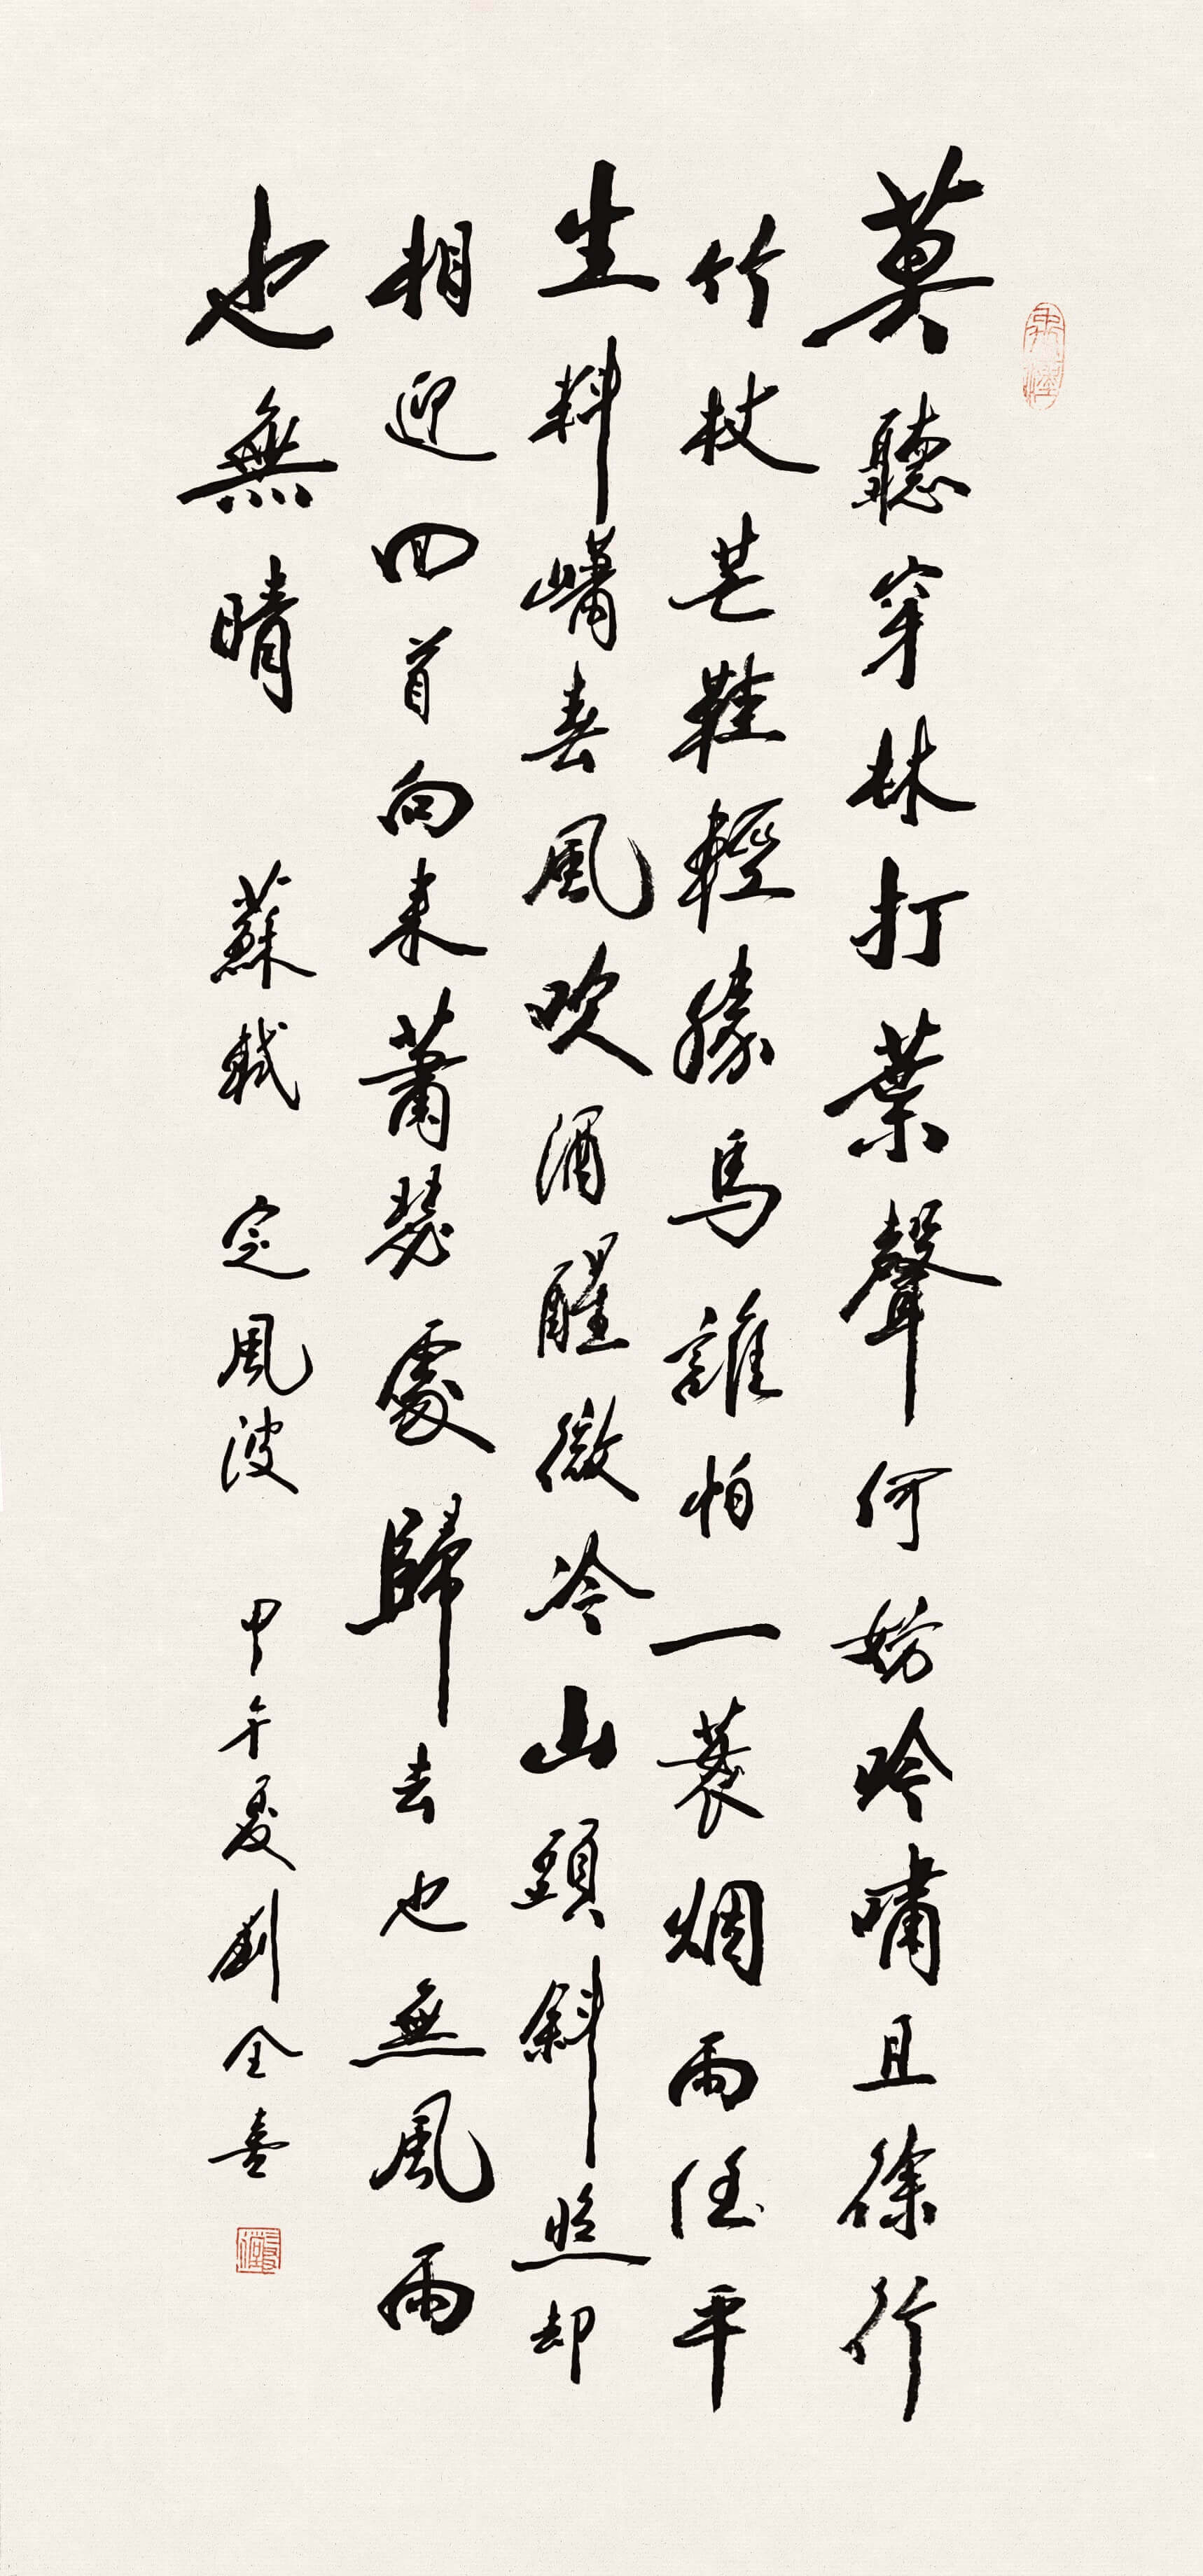 莫聽穿林打葉聲何妨吟嘯且徐行
竹杖芒鞋輕勝馬誰怕一蓑烟雨任平
生料嶠春風吹酒醒微冷山頭斜照却
相迎回首向来蕭瑟處歸去也無風雨
也無晴 蘇軾 定風波 甲午夏劉全喜